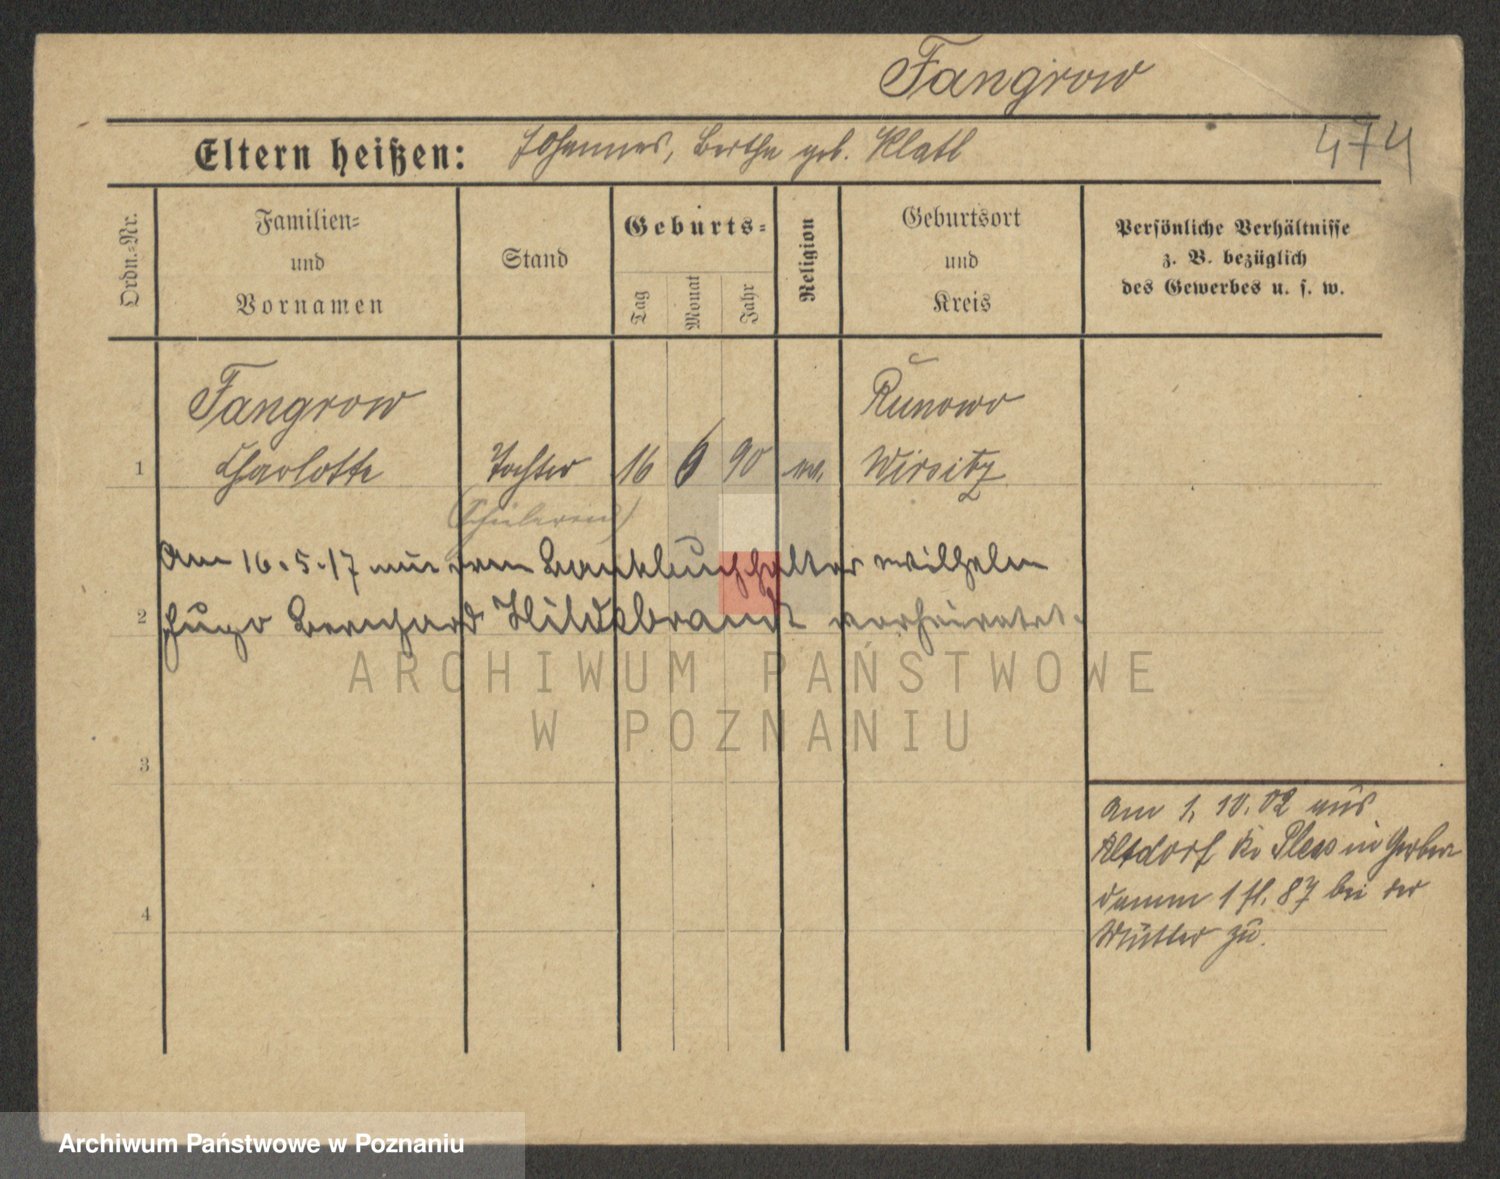 Fangrow
474
Eltern heißen: Johannes, Bertha geb. Klatt
Ordn.-Nr.
Familien-
und
Vornamen
Stand
Geburts-
Tag
Monat
Jahr
Religion
Geburtsort
und
Kreis
Persönliche Verhältnisse
z. B. bezüglich
des Gewerbes u. s. w.
Fangrow
Runowo
1 Charlotte Tochter 16 6 90 ev. Wirsitz
(Schülerin)
Am 16.5.17 mit dem Bankbuchhalter Wilhelm
2
Hugo Bernhard Hildebrandt verheiratet.
ARCHIWUM PAŃSTWOWE
W POZNANIU
3
am 1. 10. 02 aus
Altdorf Kr Pless in Gerber
damm 1 II. 87 bei der
4
Mutter zu.
Archiwum Państwowe w Poznaniu